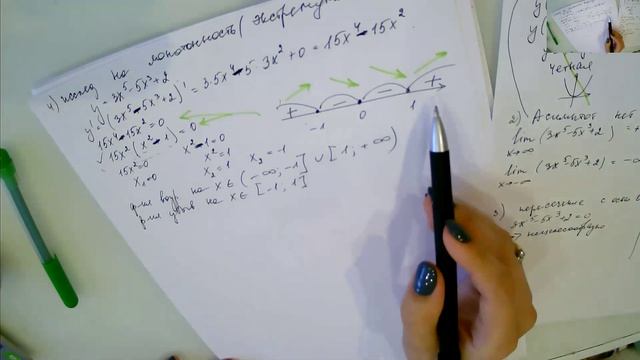 4) исслед на монотонность (экстремум
y = 3x⁵-5x³+2
y' = (3x⁵-5x³+2)' = 3·5x⁴-5·3x²+0 = 15x⁴-15x²
15x⁴-15x²=0
15x²(x²-1)=0
15x²=0 x²-1=0
x²=1
x₁=0 x₂=1 x₂=-1
+ - - +
-1 0 1
ф-ия возр на x∈(-∞;-1] ∪ [1;+∞)
ф-ия убыв на x∈[-1;1]
четная
2) Асимптот нет
lim (3x⁵-5x³+2) = +
x→∞
lim (3x⁵-5x³+2) = -∞
x→-∞
3) пересечение с осью
3x⁵-5x³+2=0
нецелесообразно